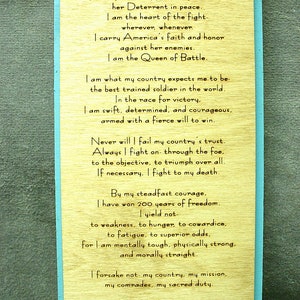 her Deterrent in peace.
I am the heart of the fight-
wherever, whenever.
I carry America's faith and honor
against her enemies.
I am the Queen of Battle.
I am what my country expects me to be-
the best trained soldier in the world.
In the race for victory,
I am swift, determined, and courageous,
armed with a fierce will to win.
Never will I fail my country's trust.
Always I fight on- through the foe,
to the objective, to triumph over all.
If necessary, I fight to my death.
By my steadfast courage,
I have won 200 years of freedom.
I yield not-
to weakness, to hunger, to cowardice,
to fatigue, to superior odds,
for I am mentally tough, physically strong,
and morally straight.
I forsake not- my country, my mission,
my comrades, my sacred duty.